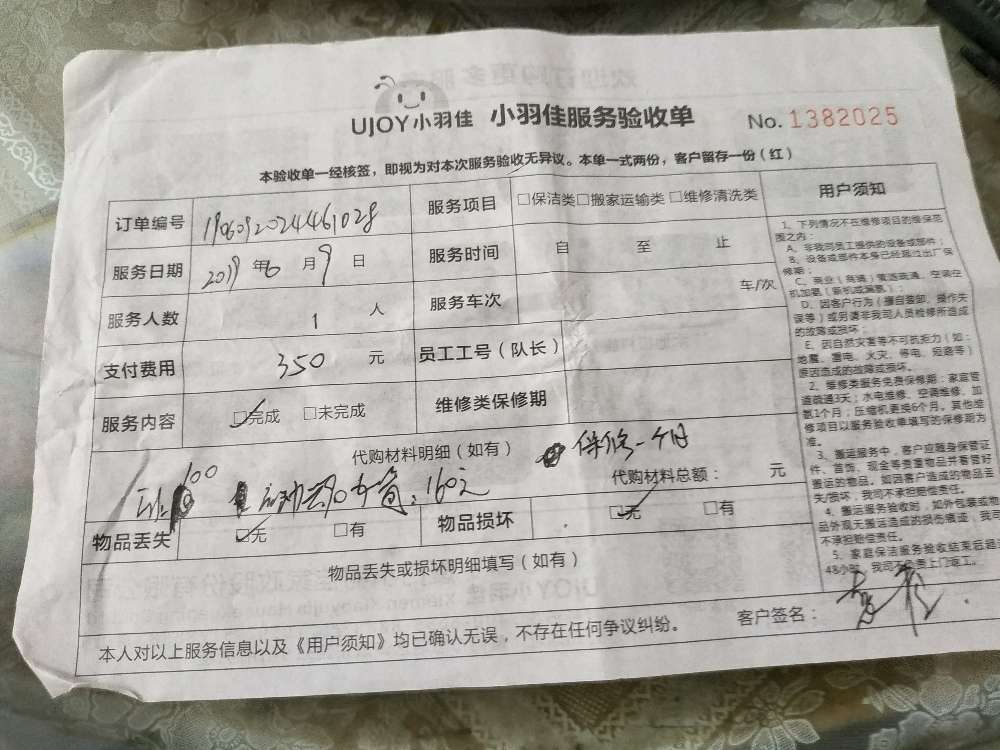 UJOY小羽佳 小羽佳服务验收单 No. 1382025
本验收单一经核签，即视为对本次服务验收无异议。本单一式两份，客户留存一份（红）
订单编号 1906092024461028 服务项目 □保洁类□搬家运输类 □维修清洗类
服务日期 2019 年 6 月 9 日 服务时间 自 至 止
服务人数 1 人 服务车次 车/次
支付费用 350 元 员工工号（队长）
服务内容 ☑完成 □未完成 维修类保修期
代购材料明细（如有） 保修一个月
100 160元 代购材料总额： 元
物品丢失 ☑无 □有 物品损坏 ☑无 □有
物品丢失或损坏明细填写（如有）
本人对以上服务信息以及《用户须知》均已确认无误，不存在任何争议纠纷。 客户签名：
用户须知
1、下列情况不在维修项目的维保范
围之内：
A、非我司员工提供的设备或部件；
B、设备或部件本身已经超过出厂保
修期；
C、商业（商铺）管道疏通，空调空
机加氟（新机或漏氟）；
D、因客户行为（擅自装卸、操作失
误等）或另请非我司人员检修所造成
的故障或损坏；
E、因自然灾害等不可抗拒力（如：
地震、雷电、火灾、停电、短路等）
原因造成的故障或损坏。
2、维修类服务免费保修期：家庭管
道疏通3天；水电维修、空调维修、加
氨1个月；压缩机更换6个月。其他维
修项目以服务验收单填写的保修期为
准。
3、搬运服务中，客户应随身保管证
件、首饰、现金等贵重物品并看管好
搬运的物品。如因客户造成的物品丢
失/损坏，我司不承担赔偿责任。
4、搬运服务验收时，如外包装或物
品外观无搬运造成的损伤痕迹，我司
不承担赔偿责任。
5、家庭保洁服务验收结束后超过
48小时，我司不负责上门返工。